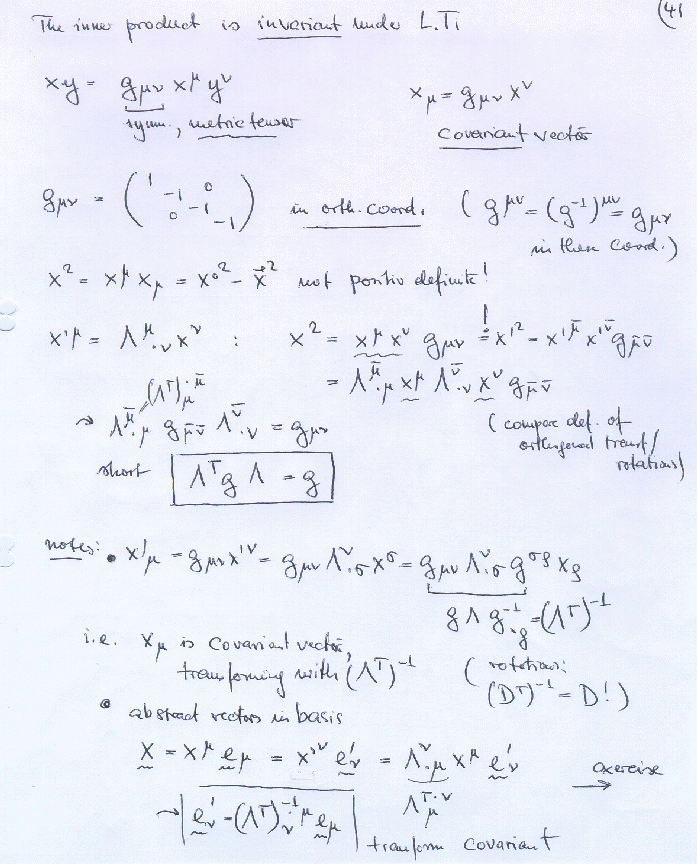 (41
The inner product is invariant under L.T.:
x·y = g_{μν} x^μ y^ν    x_μ = g_{μν} x^ν
symm., metric tensor    covariant vector
g_{μν} = ( 1 -1 0 0 -1 -1 ) in orth. coord. ( g^{μν} = (g^{-1})^{μν} = g_{μν}
in these coord. )
x² = x^μ x_μ = x^{0 2} - \vec{x}² not positiv definite!
x'^μ = Λ^μ_{·ν} x^ν : x² = x^μ x^ν g_{μν} =! x'² - x'^{\bar μ} x'^{\bar ν} g_{\bar μ \bar ν}
(Λ^T)_μ^{·\bar μ}    = Λ^{\bar μ}_{·μ} x^μ Λ^{\bar ν}_{·ν} x^ν g_{\bar μ \bar ν}
→ Λ^{\bar μ}_{·μ} g_{\bar μ \bar ν} Λ^{\bar ν}_{·ν} = g_{μν}    ( compare def. of
orthogonal transf/
rotations)
short    Λ^T g Λ = g
notes: • x'_μ = g_{μν} x'^ν = g_{μν} Λ^ν_{·σ} x^σ = g_{μν} Λ^ν_{·σ} g^{σρ} x_ρ
g Λ g^{-1} = (Λ^T)^{-1}
i.e. x_μ is covariant vector,
transforming with (Λ^T)^{-1}    ( rotations:
(D^T)^{-1} = D! )
• abstract vectors in basis
x = x^μ e_μ = x'^ν e'_ν = Λ^ν_{·μ} x^μ e'_ν    exercise →
Λ^T_μ^{·ν}
→ e'_ν = (Λ^T)^{-1}_ν^{·μ} e_μ    transform covariant